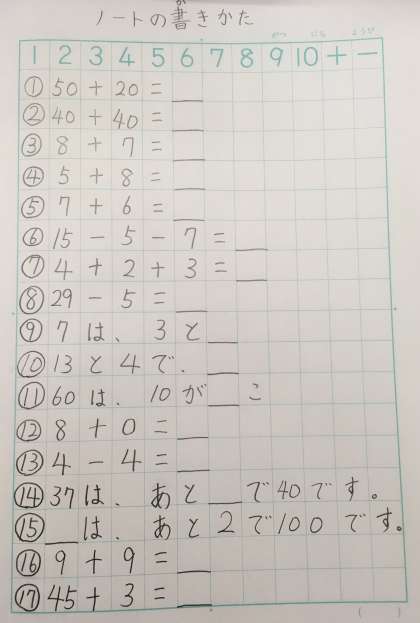 ノートの書きかた
1 2 3 4 5 6 7 8 9 10 + −
① 50 + 20 = __
② 40 + 40 = __
③ 8 + 7 = __
④ 5 + 8 = __
⑤ 7 + 6 = __
⑥ 15 − 5 − 7 = __
⑦ 4 + 2 + 3 = __
⑧ 29 − 5 = __
⑨ 7 は、 3 と __
⑩ 13 と 4 で、 __
⑪ 60 は、 10 が __ こ
⑫ 8 + 0 = __
⑬ 4 − 4 = __
⑭ 37 は、 あと __ で 40 です。
⑮ __ は、 あと 2 で 100 です。
⑯ 9 + 9 = __
⑰ 45 + 3 = __
( )